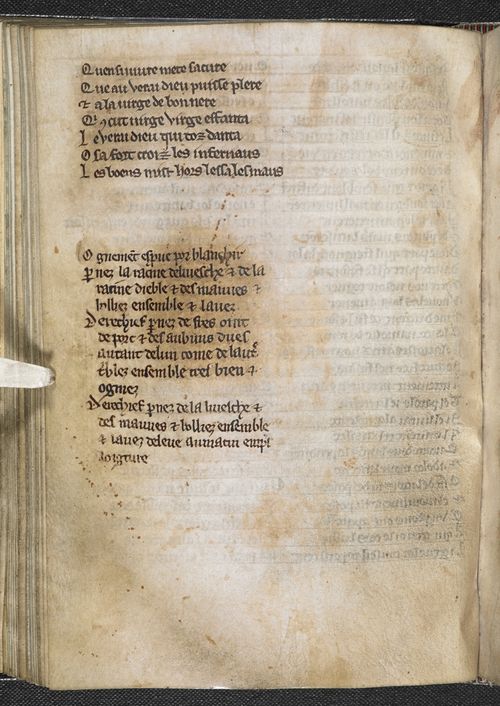 Quensiuuire mete sa cure
Que au verai dieu puisse plere
⁊ a la uirge de bonnere
Q ꝯcut uirge virge effanta
Le verai dieu qui toz danta
O sa fort croiz les infernaus
Les boens mist hors lessa les maus
Ognemēt espue por blanchir
ꝑnez la racine de luesche ⁊ de la
racine dieble ⁊ des mauues ⁊
bolliez ensemble ⁊ lauez
Derechief ꝑnez de fres oint
de porc ⁊ des aubuns dues
autant de lun come de lautͤ
tͥblez ensemble tres bien ⁊
ogniez
Derechief ꝑnez de la luesche ⁊
des mauues ⁊ bolliez ensemble
⁊ lauez de leue au matin enpͥs
loigture